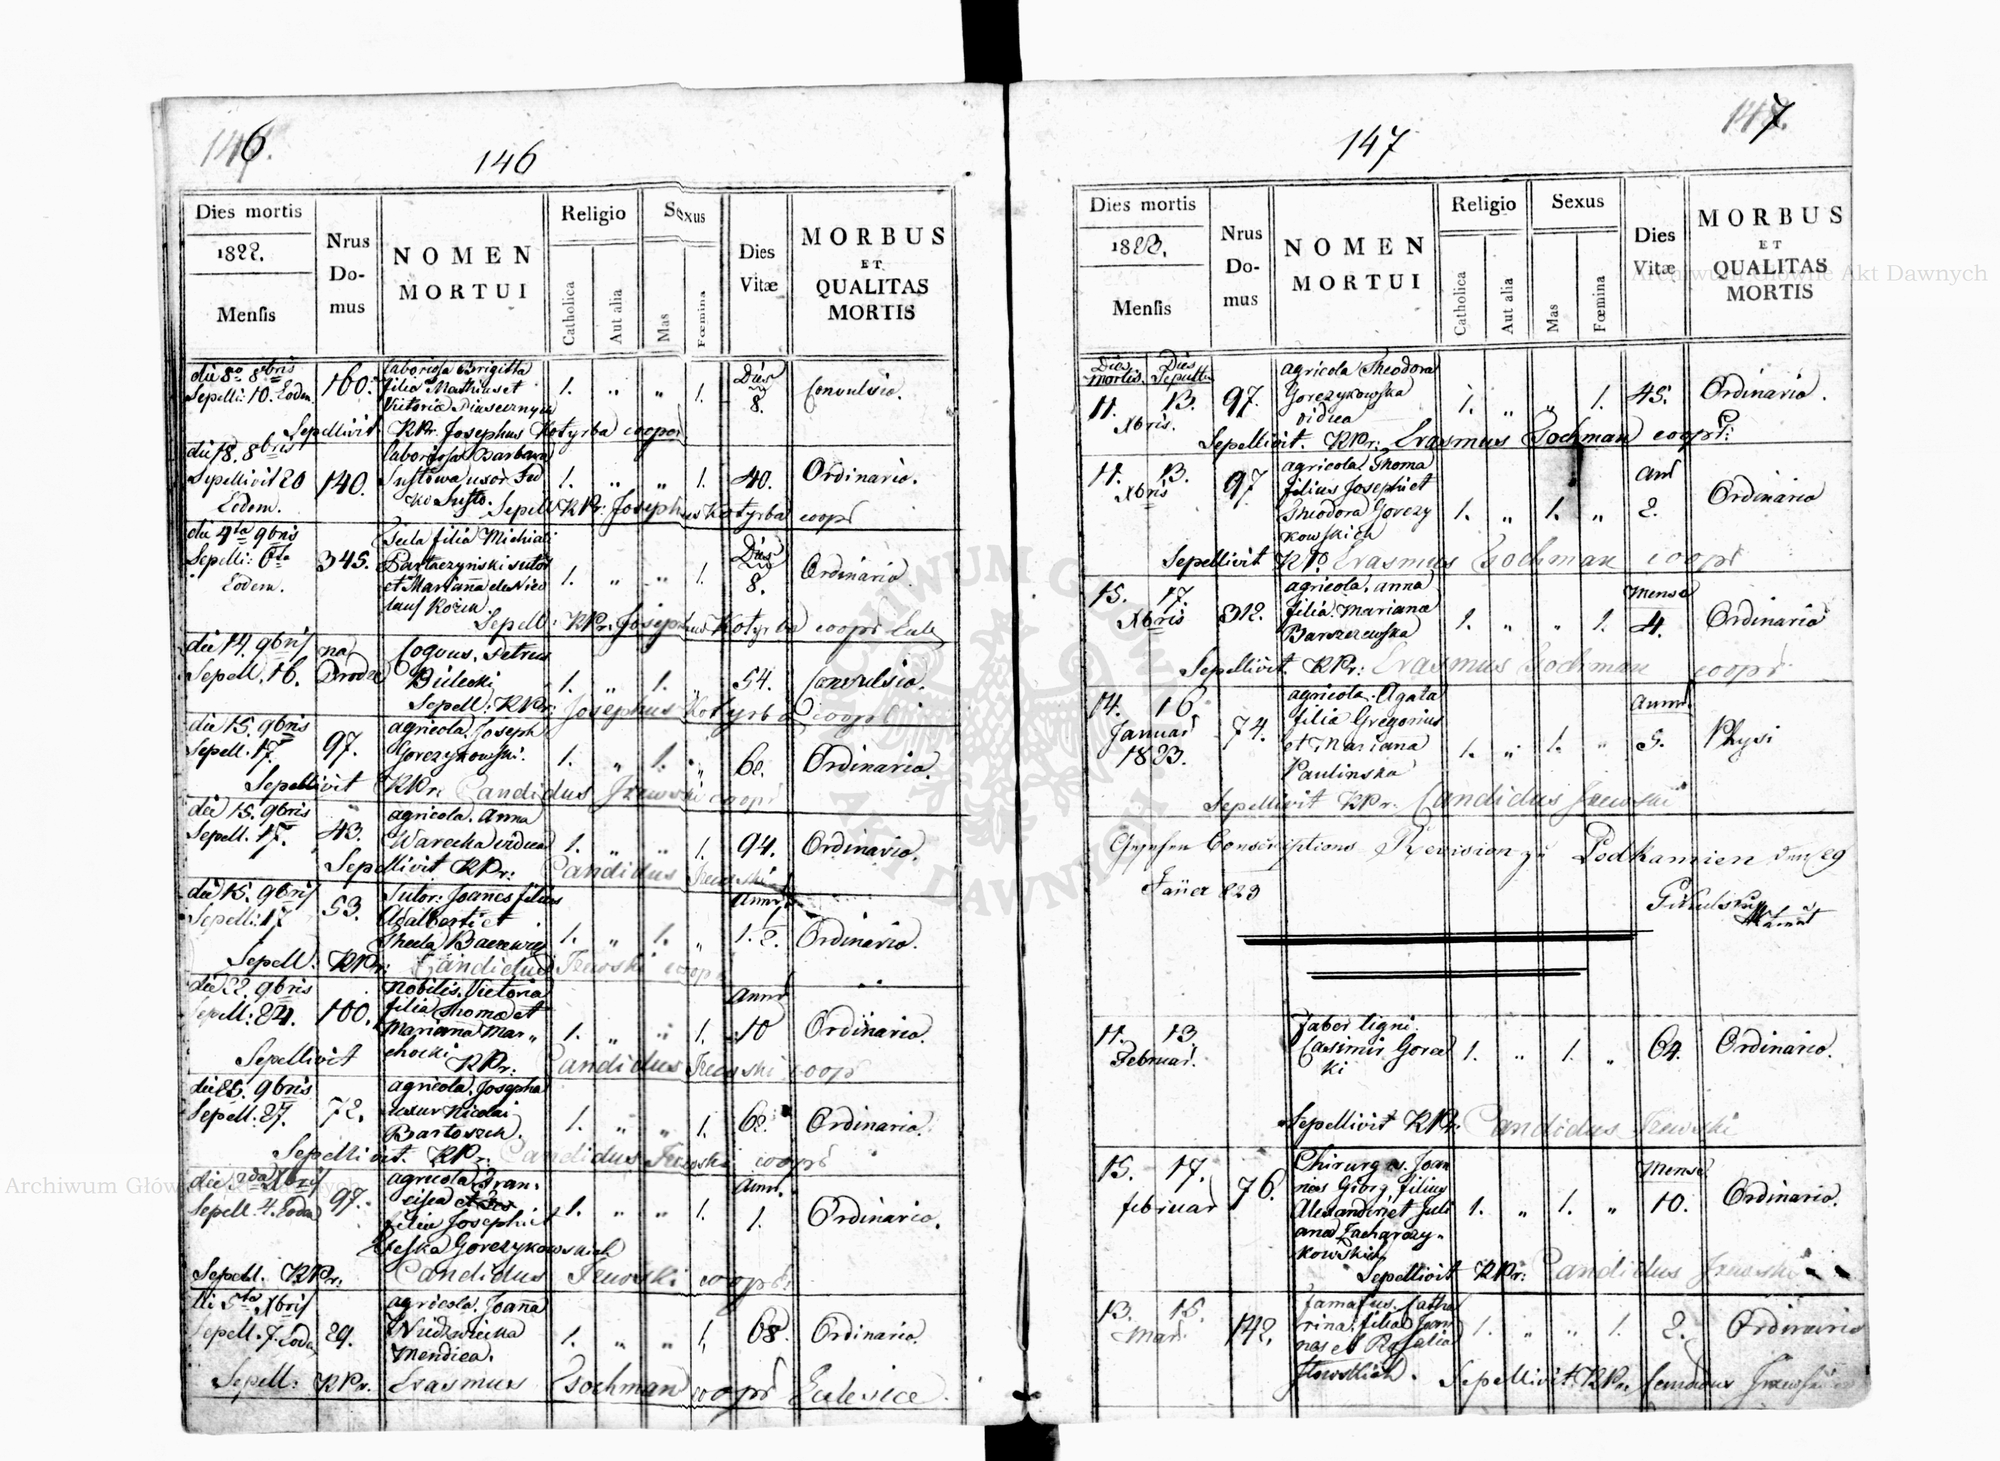 146.
146
Dies mortis
1822.
Mensis
Nrus Do-mus
NOMEN MORTUI
Religio
Catholica
Aut alia
Sexus
Mas
Fœmina
Dies Vitæ
MORBUS ET QUALITAS MORTIS
die 8o 8bris
Sepelli: 10. Eodem
160.
laboriosa Brigitta
filia Mathias et
Victoria Piasecznych
1. " " 1.
Dies
8.
Convulsio.
Sepellivit RPr. Josephus Kotyrba coopr
die 18. 8bris
Sepellivit 20
Eodem.
140.
laboriosa Barbara
Sustowa uxor Fed
ko Susto.
1. " " 1.
40.
Ordinario.
Sepell RPr: Josephus Kotyrba coopr
die 4ta 9bris
Sepelli: 6ta
Eodem.
345.
Tecla filia Michiai
Bartaczynski sutor
et Marianna de
1. " " 1.
Dies
8.
Ordinario.
Sepell: RPr: Josephus Kotyrba coopr Eccl
die 14. 9bris
Sepell. 16.
na
Prodze
Coquus. Petrus
Bielecki
1. " 1. "
54.
Convulsio.
Sepell: RPr: Josephus Kotyrba coopr
die 15. 9bris
Sepell. 17.
97.
agricola. Joseph
Gorczykowski.
1. " 1. "
62.
Ordinario.
Sepellivit RPr: Candidus Izewski coopr
die 15. 9bris
Sepell. 17.
43.
agricola. Anna
Warecka vidua
1. " " 1.
94.
Ordinario.
Sepellivit RPr: Candidus Izewski
die 15. 9bris
Sepelli: 17
53.
Sutor: Joannes filius
Adalberti et
Thecla
1. " 1. "
Anni
1. 2.
Ordinario.
Sepell: RPr: Candidus Izewski coopr
die 22. 9bris
Sepell: 24.
100.
nobilis. Victoria
filia Thoma et
Marianna Mar-
chocki
1. " " 1.
Anni
10
Ordinario.
Sepellivit RPr: Candidus Izewski coopr
die 25. 9bris
Sepell. 27.
72.
agricola. Josepha
uxor Nicolai
Bartoszek.
1. " " 1.
62.
Ordinario.
Sepellivit. RPr: Candidus Izewski coopr
die 2da Xbris
Sepell. 4. Eodem
97.
agricola Fran-
cisca
filia Josephi et
Gorczykowskich
1. " " 1.
Anni.
1.
Ordinario.
Sepell. RPr: Candidus Izewski coopr:
5ta Xbris
Sepell. 7. Eodem
29.
agricola. Joanna
Mendica.
1. " " 1.
68.
Ordinario.
Sepell: RPr. Erasmus Sochman coopr Eclesiæ.
147.
147
Dies mortis
1823.
Mensis
Nrus Do-mus
NOMEN MORTUI
Religio
Catholica
Aut alia
Sexus
Mas
Fœmina
Dies Vitæ
MORBUS ET QUALITAS MORTIS
Dies Mortis
Dies Sepultu
11. 13.
Xbris.
97.
agricola Theodora
Gorczykowska
vidua
1. " " 1.
45.
Ordinario.
Sepellivit. RPr: Erasmus Sochman coopr:
11. 13.
Xbris
97
agricola. Thoma
filius Josephi et
Theodora Gorczy
kowskich
1. " 1. "
Ani
2.
Ordinario
Sepellivit RPr Erasmus Sochman coopr
15. 17.
Xbris
312.
agricola. anna
filia Mariana
Barszczewska
1. " " 1.
Mense
4.
Ordinario
Sepellivit. RPr: Erasmus Sochman coopr
14. 16
Januar
1823.
74.
agricola. Agata
filia Gregorius
et Mariana
Paulinska
1. " 1. "
Anni
5.
Physi
Sepellivit RPr. Candidus Izewski
Gesehen Conscriptions Revision zu Podkamien den 29
Jäner 823
11. 13.
Februar.
Faber ligni
Casimir Gorec
ki
1. " 1. "
64.
Ordinario.
Sepellivit RPr. Candidus Izewski
15. 17.
februar
76.
Chirurgus. Joan
nes Georg, filius
Alexandri et Juli
anna Zacharczy-
kowskich
1. " 1. "
Mense
10.
Ordinario.
Sepellivit RPr: Candidus Izewski
13. 15
Mar.
142.
Famatus. Catha
rina. filia Joan
nes et Rosalia
1. " " 1.
2.
Ordinario
Sepellivit. RPr: Candidus Izewski
Archiwum Główne Akt Dawnych
Archiwum Główne Akt Dawnych
ARCHIWUM GŁÓWNE AKT DAWNYCH